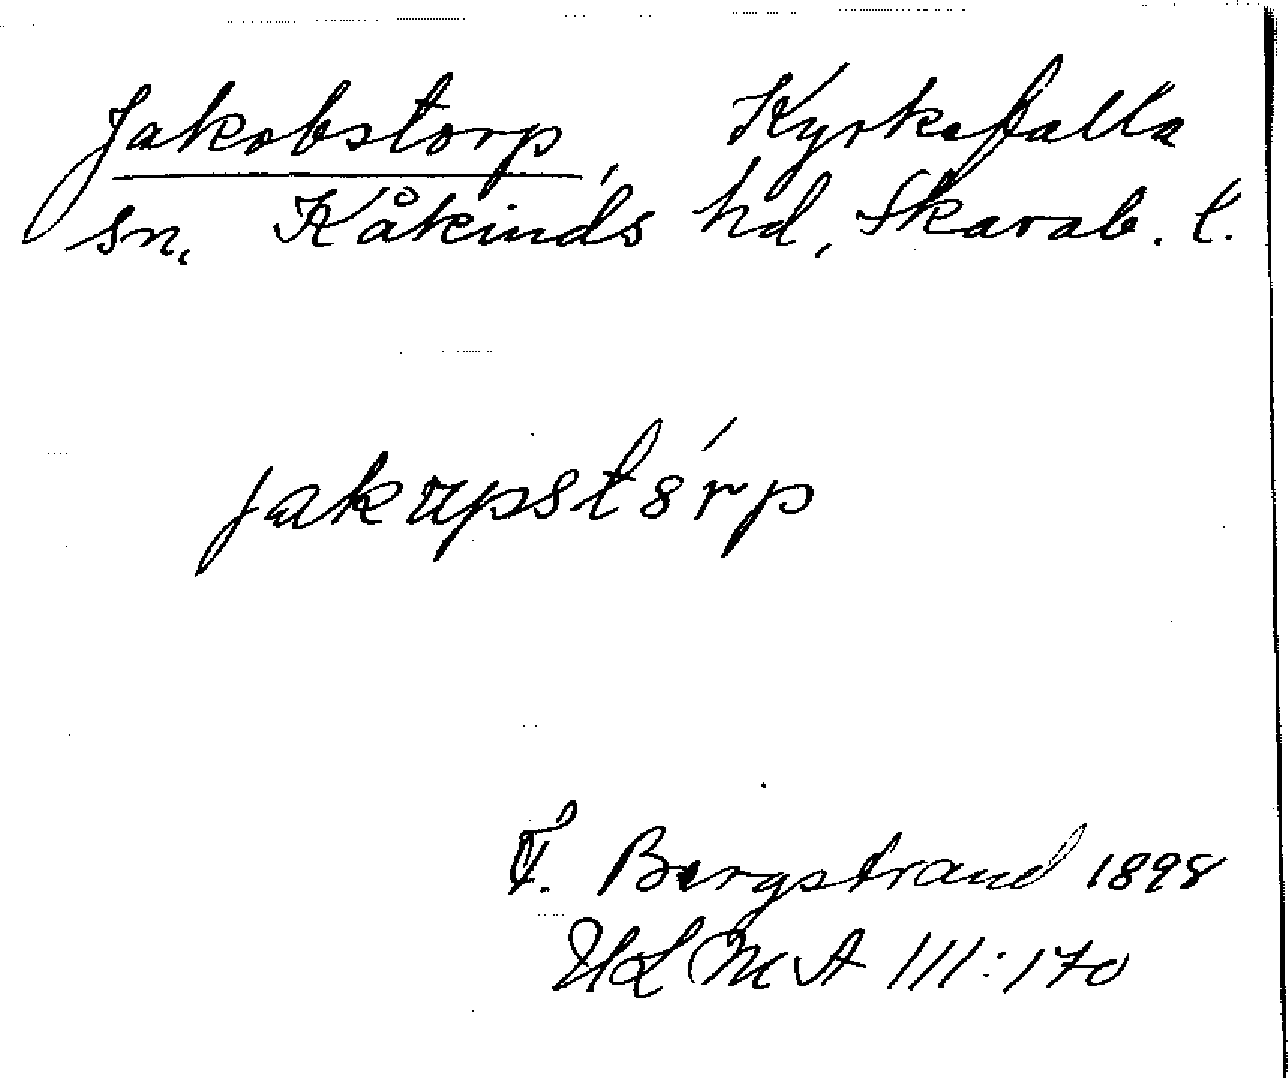 Jakobstorp, Kyrkefalla
sn, Kåkinds hd, Skarab. l.
jakupstórp
F. Bergstrand 1898
ULMA 111:170